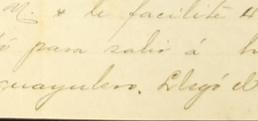 M. & le facilité 4
tó para salir á h
guayulero. Llegó el